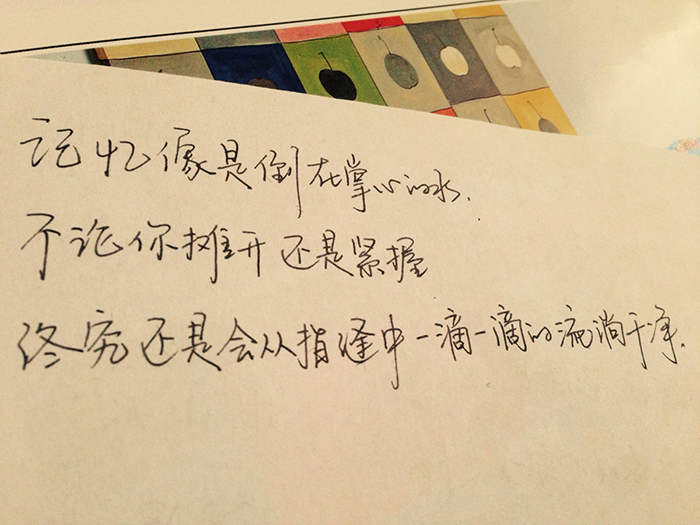 记忆像是倒在掌心的水.
不论你摊开还是紧握
终究还是会从指缝中一滴一滴的流淌干净.